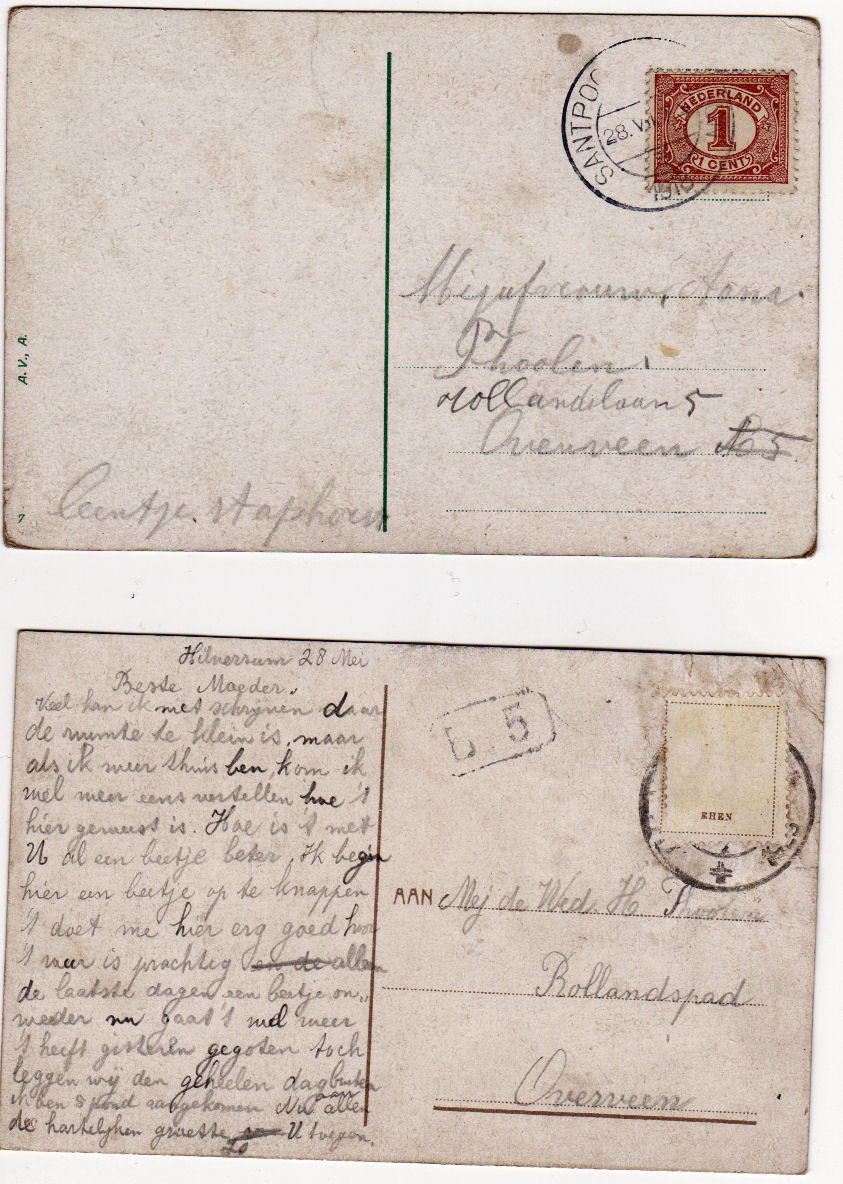 SANTPOO
28.VI
NEDERLAND
1
1 CENT
Mejufvrouw, Anna.
Thoolen,
Hollandslaan 5
Overveen No 5
A. V., A.
7
Leentje. Staphorst
Hilversum 28 Mei
Beste Moeder.
Veel kan ik niet schrijven daar
de ruimte te klein is, maar
als ik weer thuis ben, kom ik
wel meer eens vertellen hoe 't
hier geweest is. Hoe is 't met
U al een beetje beter. Ik begin
hier een beetje op te knappen
't doet me hier erg goed hoor
't weer is prachtig en de alleen
de laatste dagen een beetje on„
weeder nu gaat 't wel weer
't heeft gisteren gegoten toch
leggen wij den geheelen dag buiten
Ik ben 8 pond aangekomen Nu aan allen
de hartelijken groeste U toegen.
Zo
5
EHEN
AAN Mej de Wed. H Thoolen
Rollandspad
Overveen